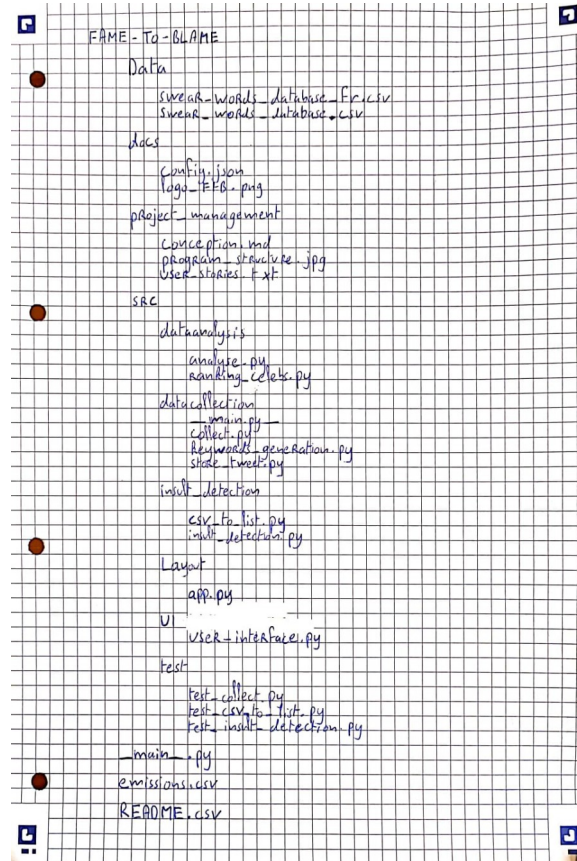 FAME-TO-BLAME
Data
swear_words_database_fr.csv
swear_words_database.csv
docs
config.json
logo_FTB.png
project_management
conception.md
program_structure.jpg
user_stories.txt
src
dataanalysis
analyse.py
ranking_celebs.py
datacollection
__main.py__
collect.py
keywords_generation.py
store_tweet.py
insult_detection
csv_to_list.py
insult_detection.py
Layout
app.py
UI
user_interface.py
test
test_collect.py
test_csv_to_list.py
test_insult_detection.py
__main__.py
emissions.csv
README.csv